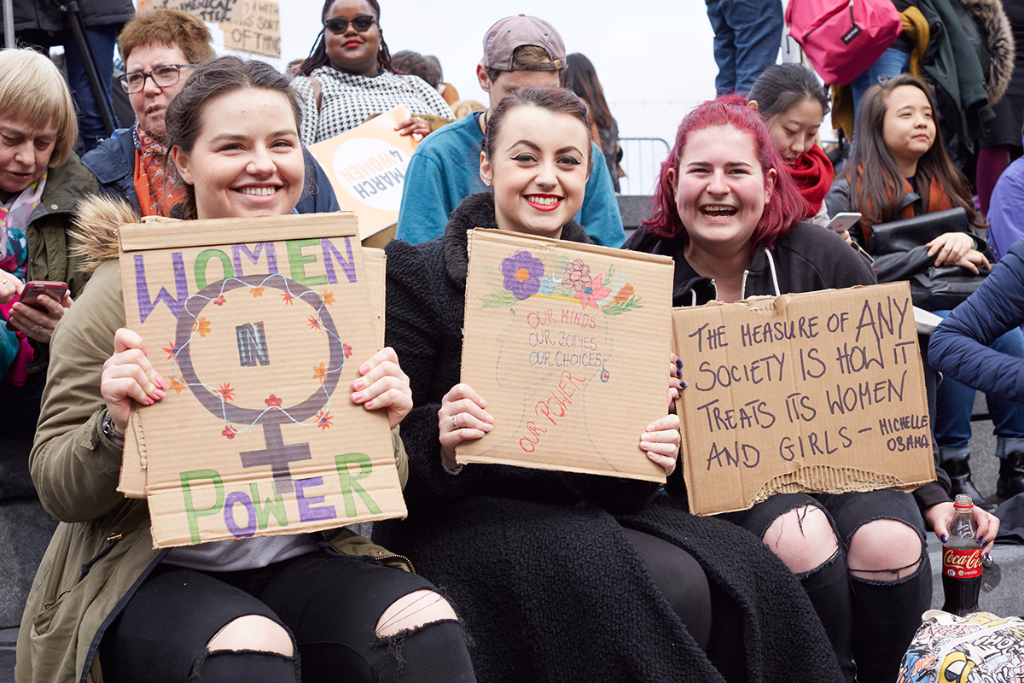 WITH
THIS SORT
OF THING
MARCH
4
WOMEN
WOMEN
IN
POWER
OUR MINDS
OUR BODIES
OUR CHOICES
OUR POWER
THE MEASURE OF ANY
SOCIETY IS HOW IT
TREATS ITS WOMEN
AND GIRLS - MICHELLE
OBAMA
Coca-Cola